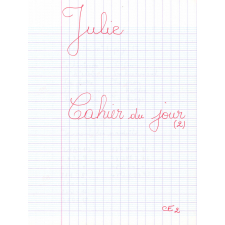 Julie
Cahier du jour
(2)
CE2